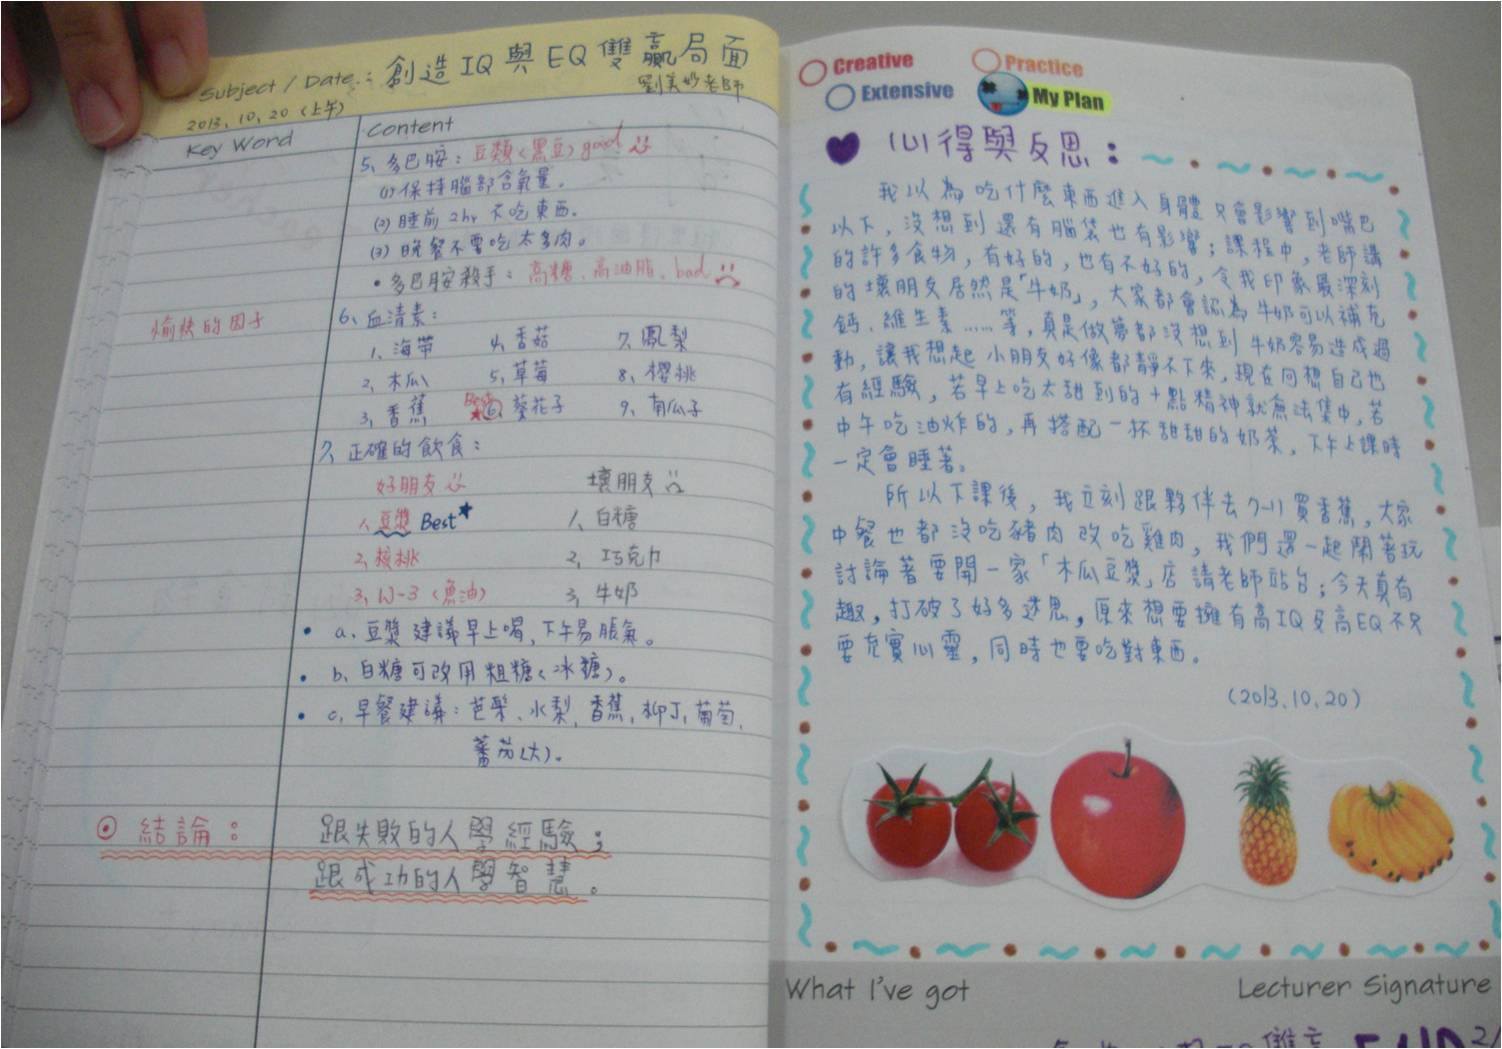 Subject / Date : 創造IQ與EQ雙贏局面
劉美妙老師
2013. 10. 20 (上午)
Key Word
Content
5、多巴胺：豆類(黑豆) good
(1) 保持腦部含氧量。
(2) 睡前 2hr 不吃東西。
(3) 晚餐不要吃太多肉。
• 多巴胺殺手：高糖、高油脂、bad
愉快的因子
6、血清素：
1、海帶 4、香菇 7、鳳梨
2、木瓜 5、草莓 8、櫻桃
3、香蕉 Best ★ 6、葵花子 9、南瓜子
7、正確的飲食：
好朋友 壞朋友
1、豆漿 Best★ 1、白糖
2、核桃 2、巧克力
3、W-3 (魚油) 3、牛奶
• a. 豆漿建議早上喝、下午易脹氣。
• b. 白糖可改用粗糖(冰糖)。
• c. 早餐建議：芭樂、水梨、香蕉、柳丁、葡萄、
蕃茄(大)。
⊙ 結論： 跟失敗的人學經驗；
跟成功的人學智慧。
Creative Practice
Extensive My Plan
心得與反思：
我以為吃什麼東西進入身體只會影響到嘴巴
以下，沒想到還有腦袋也有影響；課程中，老師講
的許多食物，有好的，也有不好的，令我印象最深刻
的壞朋友居然是「牛奶」，大家都會認為牛奶可以補充
鈣、維生素……等，真是做夢都沒想到牛奶容易造成過
動，讓我想起小朋友好像都靜不下來，現在回想自己也
有經驗，若早上吃太甜到的十點精神就無法集中，若
中午吃油炸的，再搭配一杯甜甜的奶茶，下午上課時
一定會睡著。
所以下課後，我立刻跟夥伴去7-11買香蕉，大家
中餐也都沒吃豬肉改吃雞肉，我們還一起鬧著玩
討論著要開一家「木瓜豆漿」店請老師站台；今天真有
趣，打破了好多迷思，原來想要擁有高IQ及高EQ不只
要充實心靈，同時也要吃對東西。
(2013.10.20)
What I've got
Lecturer Signature